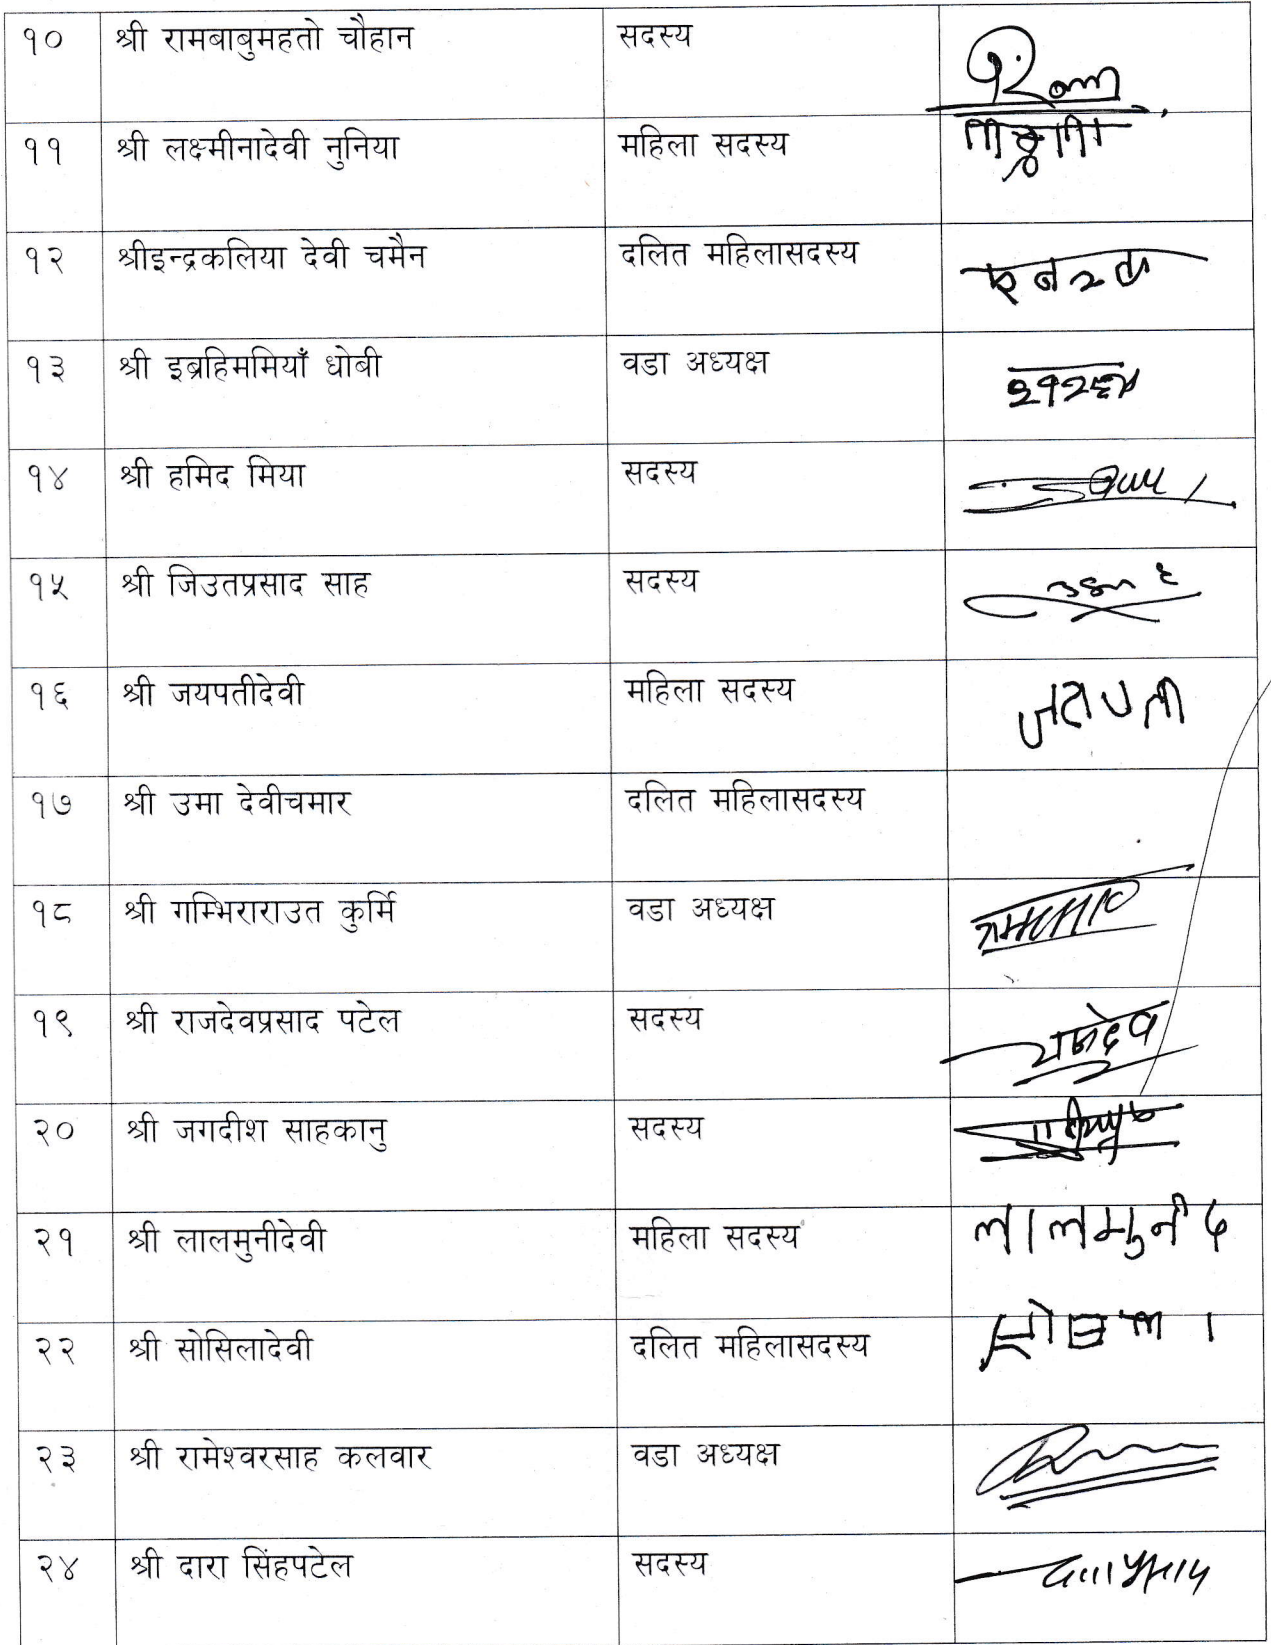 १० श्री रामबाबुमहतो चौहान सदस्य
११ श्री लक्ष्मीनादेवी नुनिया महिला सदस्य
१२ श्रीइन्द्रकलिया देवी चमैन दलित महिलासदस्य
१३ श्री इब्रहिममियाँ धोबी वडा अध्यक्ष
१४ श्री हमिद मिया सदस्य
१५ श्री जिउतप्रसाद साह सदस्य
१६ श्री जयपतीदेवी महिला सदस्य
१७ श्री उमा देवीचमार दलित महिलासदस्य
१८ श्री गम्भिराराउत कुर्मि वडा अध्यक्ष
१९ श्री राजदेवप्रसाद पटेल सदस्य
२० श्री जगदीश साहकानु सदस्य
२१ श्री लालमुनीदेवी महिला सदस्य लालमुनी दे
२२ श्री सोसिलादेवी दलित महिलासदस्य
२३ श्री रामेश्वरसाह कलवार वडा अध्यक्ष
२४ श्री दारा सिंहपटेल सदस्य